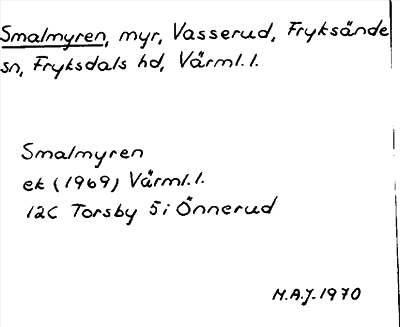 Smalmyren, myr, Vasserud, Fryksände
sn, Fryksdals hd, Värml.l.
Smalmyren
ek (1969) Värml.l.
12C Torsby 5i Önnerud
M.A.J. 1970